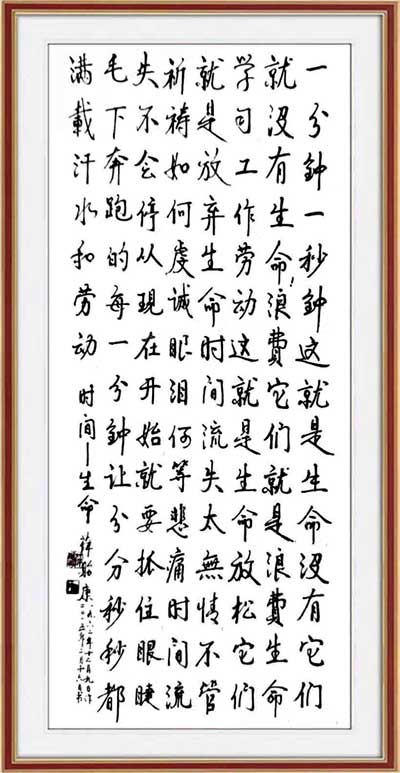 一分鐘一秒鐘这就是生命没有它们
就没有生命!浪費它们就是浪費生命
学习工作劳动这就是生命放松它们
就是放弃生命时间流失太無情不管
祈祷如何虔诚眼泪何等悲痛时间流
失不会停从現在开始就要抓住眼睫
毛下奔跑的每一分鐘让分分秒秒都
满載汗水和劳动 时间—生命